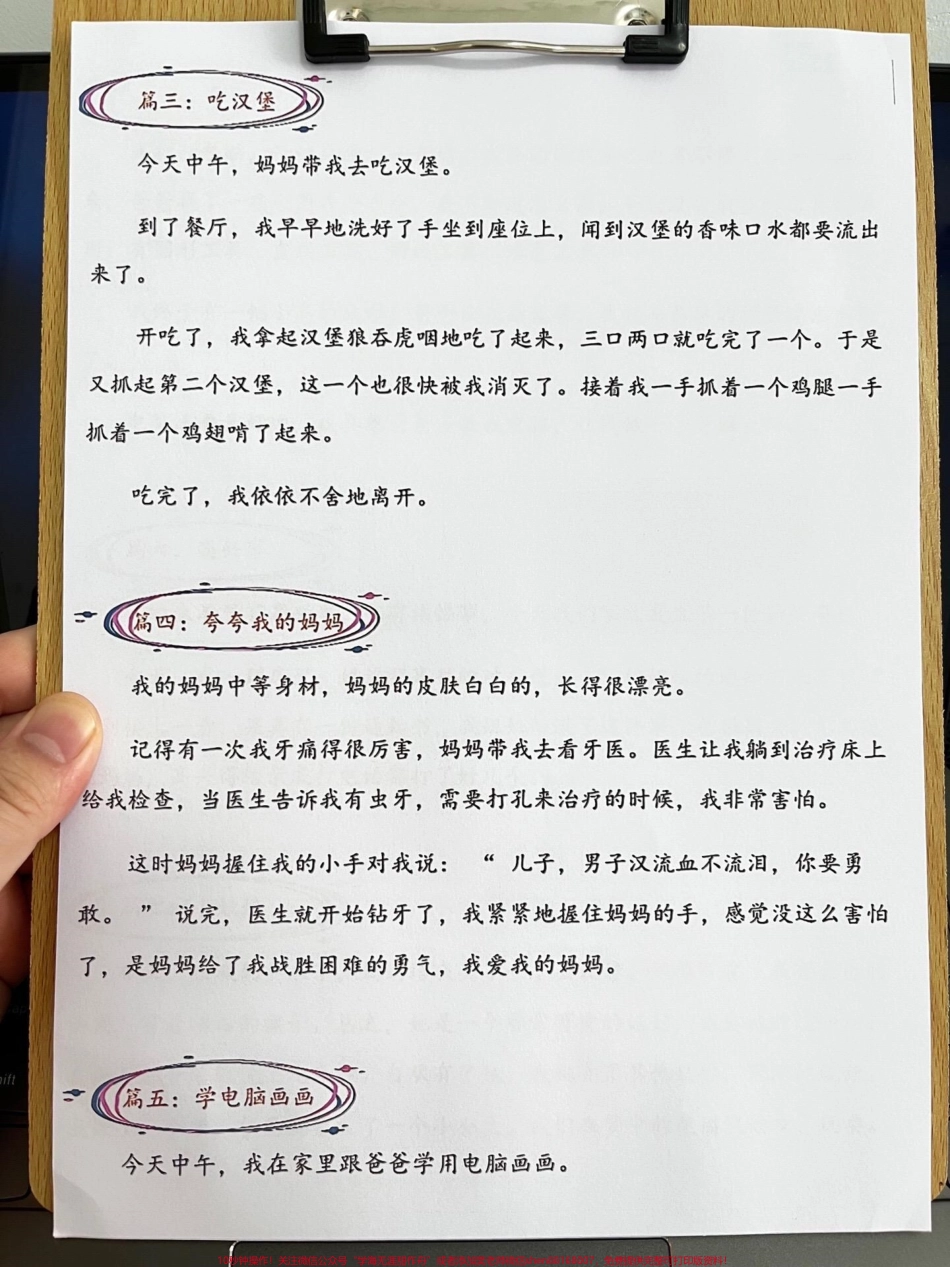 篇三：吃汉堡
今天中午，妈妈带我去吃汉堡。
到了餐厅，我早早地洗好了手坐到座位上，闻到汉堡的香味口水都要流出
来了。
开吃了，我拿起汉堡狼吞虎咽地吃了起来，三口两口就吃完了一个。于是
又抓起第二个汉堡，这一个也很快被我消灭了。接着我一手抓着一个鸡腿一手
抓着一个鸡翅啃了起来。
吃完了，我依依不舍地离开。
篇四：夸夸我的妈妈
我的妈妈中等身材，妈妈的皮肤白白的，长得很漂亮。
记得有一次我牙痛得很厉害，妈妈带我去看牙医。医生让我躺到治疗床上
给我检查，当医生告诉我有虫牙，需要打孔来治疗的时候，我非常害怕。
这时妈妈握住我的小手对我说：“ 儿子，男子汉流血不流泪，你要勇
敢。 ” 说完，医生就开始钻牙了，我紧紧地握住妈妈的手，感觉没这么害怕
了，是妈妈给了我战胜困难的勇气，我爱我的妈妈。
篇五：学电脑画画
今天中午，我在家里跟爸爸学用电脑画画。